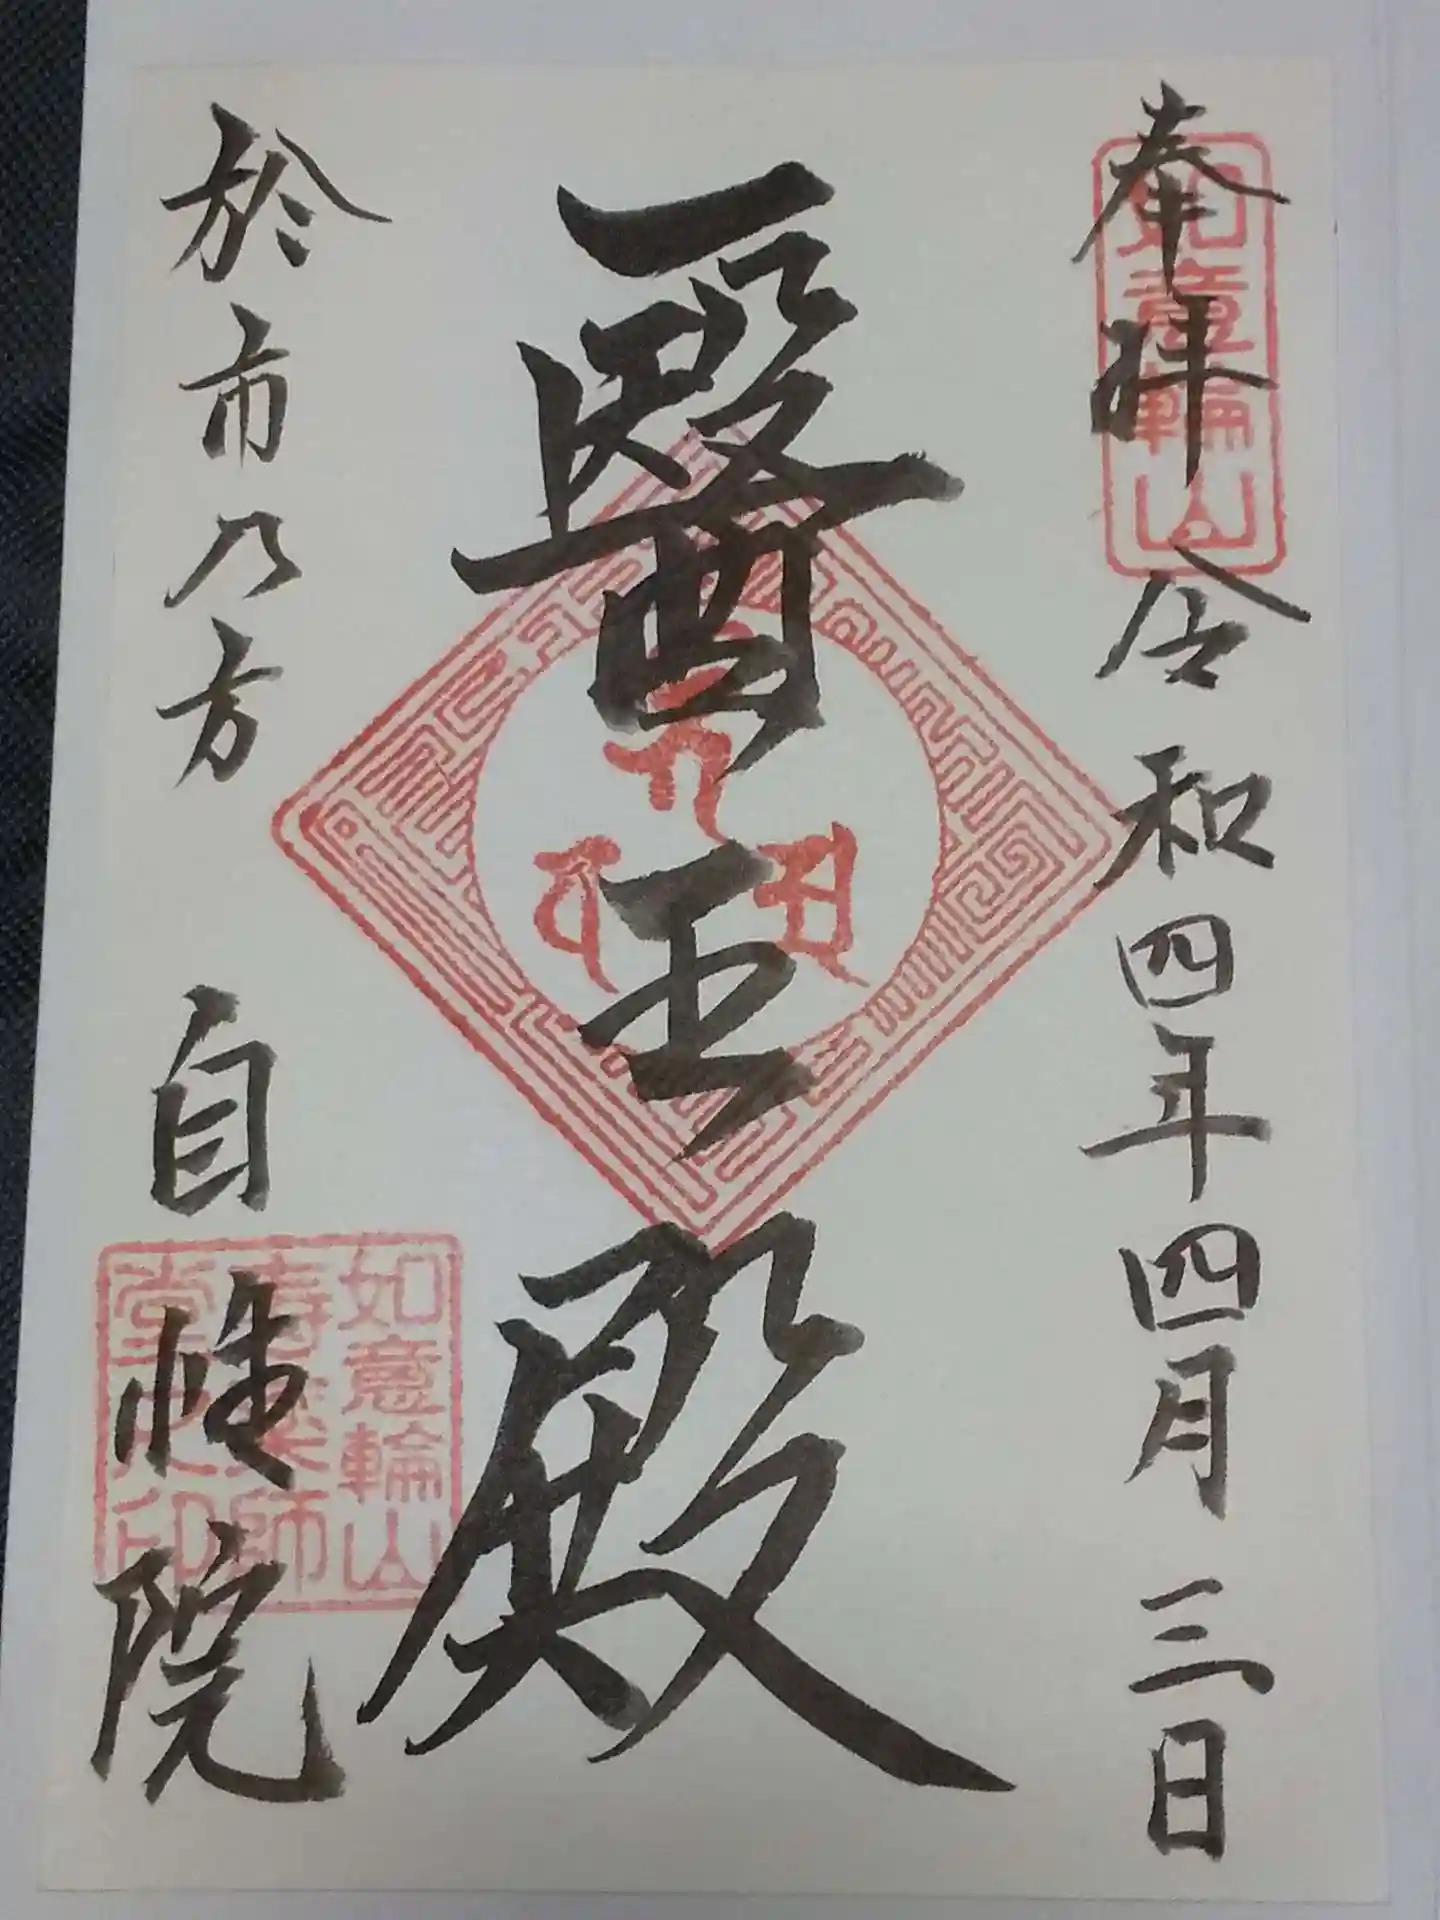 奉拝 令和四年四月三日
如意輪山
醫王殿
於市乃方 自性院
如意輪山
寿薬師
堂之印